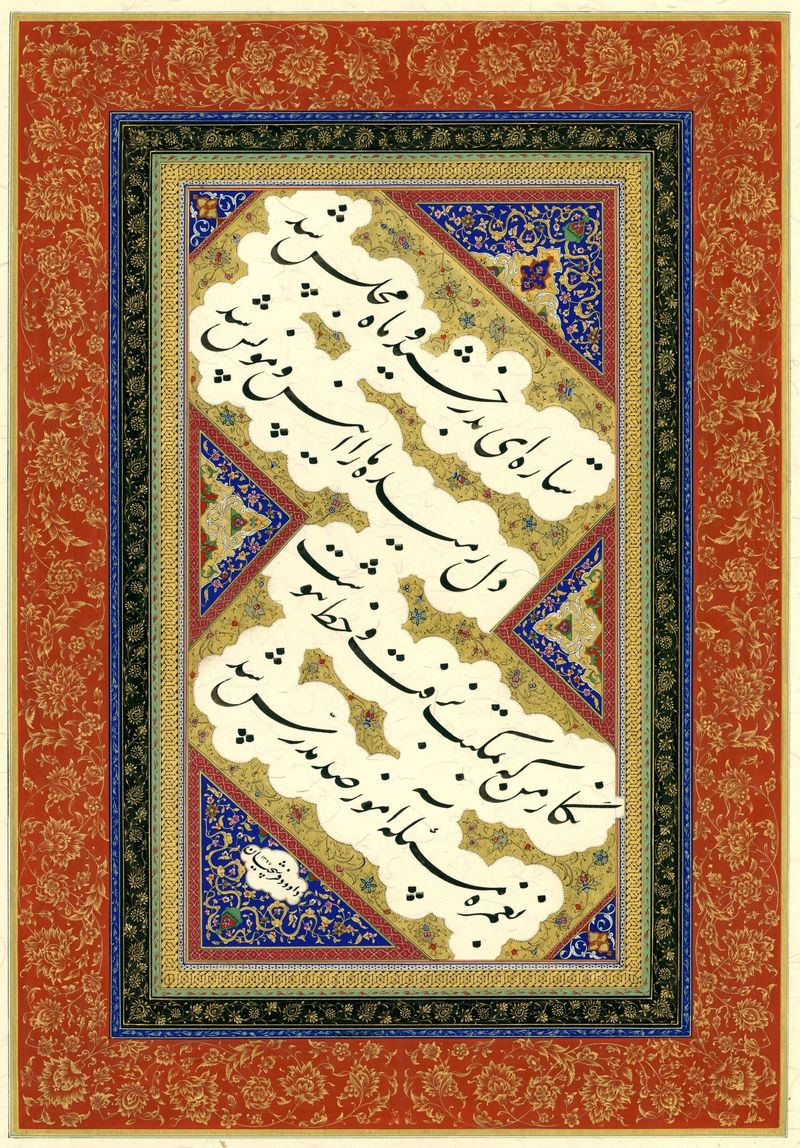 ستاره‌ای بدرخشید و ماه مجلس شد
دل رمیده ما را انیس و مونس شد
نگار من که بمکتب نرفت و خط ننوشت
بغمزه مسئله آموز صد مدرس شد
داوود فتحعلیان